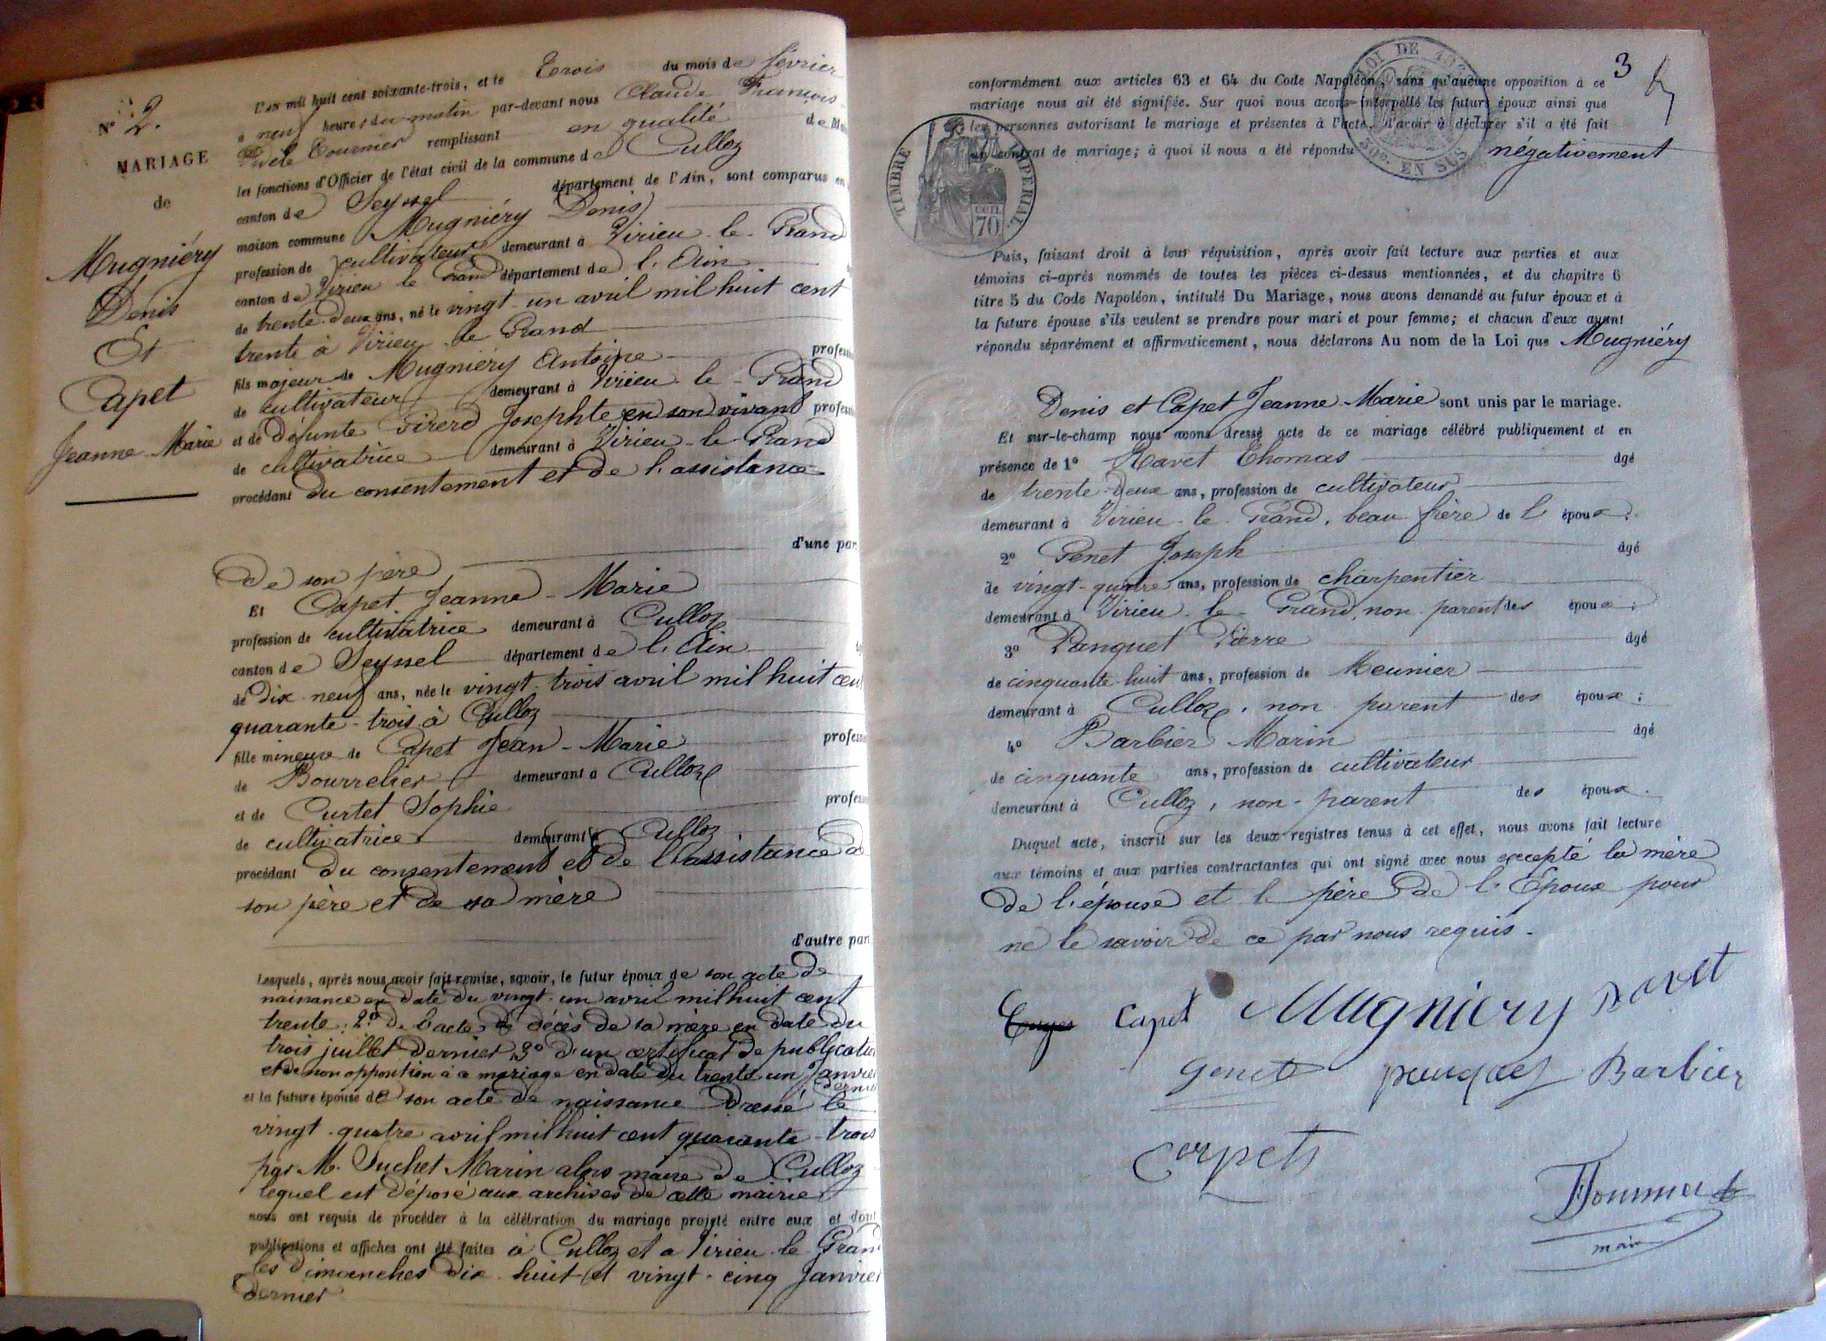 N° 2.
MARIAGE
de
Mugniéry
Denis
Et
Capet
Jeanne Marie
L'an mil huit cent soixante-trois, et le Trois du mois de février
à neuf heures du matin par-devant nous Claude François
Fidèle Tournier remplissant en qualité de
les fonctions d'Officier de l'état civil de la commune de Culloz
canton de Seyssel département de l'Ain, sont comparus en
maison commune Mugniéry Denis
profession de cultivateur demeurant à Virieu-le-Grand
canton de Virieu le Grand département de l'Ain
de trente-deux ans, né le vingt-un avril mil huit cent
trente à Virieu-le-Grand
fils majeur de Mugniéry Antoine
de cultivateur demeurant à Virieu-le-Grand
et de défunte Girerd Josephte en son vivant
de cultivatrice demeurant à Virieu-le-Grand
procédant du consentement et de l'assistance
d'une par
de son père
Et Capet Jeanne-Marie
profession de cultivatrice demeurant à Culloz
canton de Seyssel département de l'Ain
de dix-neuf ans, née le vingt-trois avril mil huit cent
quarante-trois à Culloz
fille mineure de Capet Jean-Marie
de Bourrelier demeurant à Culloz
et de Curtet Sophie
de cultivatrice demeurant à Culloz
procédant du consentement et de l'assistance de
son père et de sa mère
d'autre part
Lesquels, après nous avoir fait remise, savoir, le futur époux de son acte de
naissance en date du vingt-un avril mil huit cent
trente; 2° de l'acte de décès de sa mère en date du
trois juillet dernier, 3° d'un certificat de publication
et de non opposition à ce mariage en date du trente un Janvier
dernier
et la future épouse de son acte de naissance dressé le
vingt-quatre avril mil huit cent quarante-trois
par M. Suchet Marin alors maire de Culloz
lequel est déposé aux archives de cette mairie
nous ont requis de procéder à la célébration du mariage projeté entre eux et dont
publications et affiches ont été faites à Culloz et a Virieu-le-Grand
les dimanches dix-huit et vingt-cinq Janvier
dernier
3
conformément aux articles 63 et 64 du Code Napoléon, sans qu'aucune opposition à ce
mariage nous ait été signifiée. Sur quoi nous avons interpellé les futurs époux ainsi que
les personnes autorisant le mariage et présentes à l'acte, d'avoir à déclarer s'il a été fait
un contrat de mariage; à quoi il nous a été répondu négativement
TIMBRE IMPERIAL
CEN. 70
LOI DE
50c. EN SUS
Puis, faisant droit à leur réquisition, après avoir fait lecture aux parties et aux
témoins ci-après nommés de toutes les pièces ci-dessus mentionnées, et du chapitre 6
titre 5 du Code Napoléon, intitulé Du Mariage, nous avons demandé au futur époux et à
la future épouse s'ils veulent se prendre pour mari et pour femme; et chacun d'eux ayant
répondu séparément et affirmativement, nous déclarons Au nom de la Loi que Mugniéry
Denis et Capet Jeanne Marie sont unis par le mariage.
Et sur-le-champ nous avons dressé acte de ce mariage célébré publiquement et en
présence de 1° Havet Thomas âgé
de trente-deux ans, profession de cultivateur
demeurant à Virieu-le-Grand, beau frère de l'époux;
2° Genet Joseph âgé
de vingt-quatre ans, profession de charpentier
demeurant à Virieu-le-Grand, non parent des époux;
3° Panquet Pierre âgé
de cinquante-huit ans, profession de Meunier
demeurant à Culloz, non parent des époux;
4° Barbier Marin âgé
de cinquante ans, profession de cultivateur
demeurant à Culloz, non-parent des époux.
Duquel acte, inscrit sur les deux registres tenus à cet effet, nous avons fait lecture
aux témoins et aux parties contractantes qui ont signé avec nous excepté la mère
de l'épouse et le père de l'Epoux pour
ne le savoir de ce par nous requis.
Capet Mugniery Havet
Genet panquet Barbier
Capet
Tournier
maire